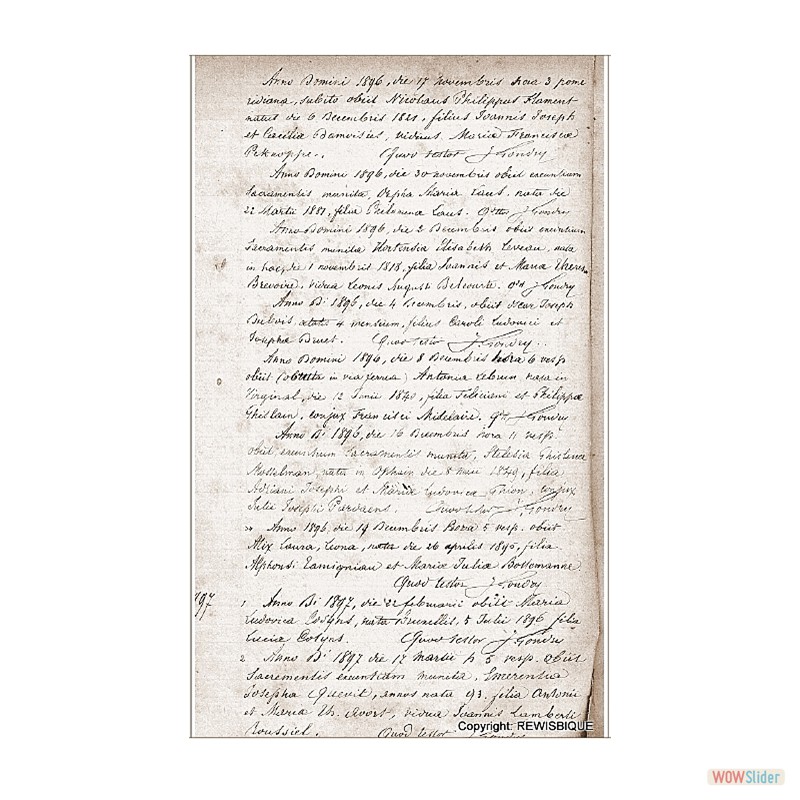 Anno Domini 1896, die 17 novembris hora 3 pome
ridiana, subito obiit Nicolaus Philippus Flament
natus die 6 Decembris 1821, filius Joannis Joseph
et Caecilia Damoisius, viduus Maria Francisca
Quod testor J. Gondry
Anno Domini 1896, die 30 novembris obiit exeuntium
Sacramentis munita, Orpha Maria Caus. nata die
22 Martii 1881, filia Philomena Caus. J. Gondry
Anno Domini 1896, die 2 Decembris obiit exeuntium
Sacramentis munita Hortensia Elisabeth Leveau, nata
in hac, die 1 novembris 1818, filia Joannis et Maria Theres.
Brevoire, vidua Leonis Augusti Delcourte. J. Gondry
Anno Di 1896, die 4 Decembris, obiit Oscar Joseph
Dubois aetate 4 mensium, filius Caroli Ludovici et
Josepha Druet. Quod testor J. Gondry
Anno Domini 1896, die 8 Decembris hora 6 vesp
obiit in via ferrea) Antonia Lebrun, nata in
Virginal, die 12 Junii 1840, filia Feliciani et Philippa
Ghislain, conjux Francisci J. Gondry
Anno Di 1896, die 16 Decembris hora 11 vesp.
obiit, exeuntium Sacramentis munita, Ghislena
Mosselman, nata in Ophain die 8 1849, filia
Adriani Josephi et Maria Ludovica conjux
Julii Josephi Quod testor J. Gondry
Anno 1896, die 19 Decembris hora 5 vesp. obiit
Alix Laura, Leona, nata die 26 aprilis 1896, filia
Alphonsi et Maria Julia Bossemanne
Quod testor J. Gondry
1897
1 Anno Di 1897, die 22 februarii obiit Maria
Ludovica Cosyns, nata Bruxellis, 5 Julii 1896 filia
Lucia Cosyns. Quod testor J. Gondry
2 Anno Di 1897 die 17 Martii h 5 vesp. obiit
Sacramentis exeuntium munita, Emerentia
Josepha Quevit, annos nata 93, filia Antonii
et Maria Th. vidua Joannis Lamberti
Roussiel. Quod testor J. Gondry
Copyright: REWISBIQUE
WOWSlider